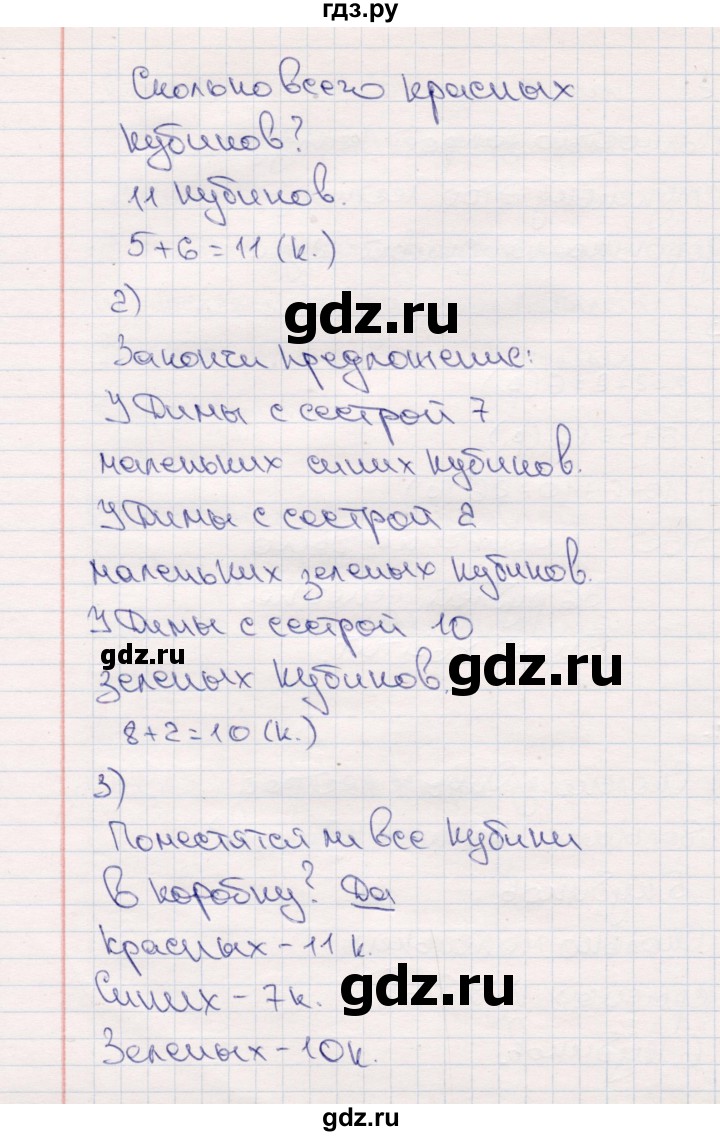 гдз.ру
Сколько всего красных
кубиков?
11 кубиков.
5+6=11 (к.)
2)
gdz.ru
Закончи предложение:
У Димы с сестрой 7
маленьких синих кубиков.
У Димы с сестрой 2
маленьких зеленых кубиков.
У Димы с сестрой 10
gdz.ru
зеленых кубиков.
gdz.ru
8+2=10 (к.)
3)
Поместятся ли все кубики
в коробку? Да
Красных - 11 к.
Синих - 7 к.
gdz.ru
Зеленых - 10 к.
gdz.ru